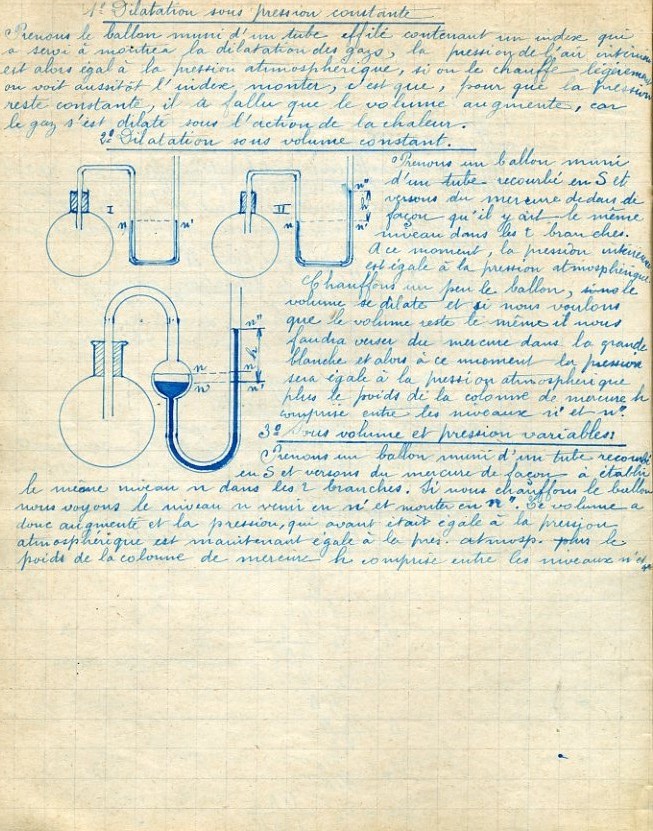 1º Dilatation sous pression constante
Prenons le ballon muni d'un tube effilé contenant un index qui
a servi à montrer la dilatation des gazs, la pression de l'air intérieur
est alors égal à la pression atmosphérique, si on le chauffe légèrement
on voit aussitôt l'index monter, c'est que, pour que la pression
reste constante, il à fallu que le volume augmente, car
le gaz s'est dilaté sous l'action de la chaleur.
2º Dilatation sous volume constant.
Prenons un ballon muni
d'un tube recourbé en S et
versons du mercure dedans de
façon qu'il y ait le même
niveau dans les 2 branches.
A ce moment, la pression intérieure
est égale à la pression atmosphérique.
I
n
n'
II
n
n'
n"
h
Chauffons un peu le ballon, sinon le
volume se dilate et si nous voulons
que le volume reste le même il nous
faudra verser du mercure dans la grande
blanche et alors à ce moment la pression
sera égale à la pression atmosphérique
plus le poids de la colonne de mercure h
comprise entre les niveaux n' et n".
n"
h
n
n'
n
n'
3º Sous volume et pression variables:
Prenons un ballon muni d'un tube recourbé
en S et versons du mercure de façon à établir
le même niveau n dans les 2 branches. Si nous chauffons le ballon
nous voyons le niveau n venir en n' et monter en n". Le volume a
donc augmenté et la pression, qui avant était égale à la pression
atmosphérique est maintenant égale à la pres. atmosp. plus le
poids de la colonne de mercure h comprise entre les niveaux n' et